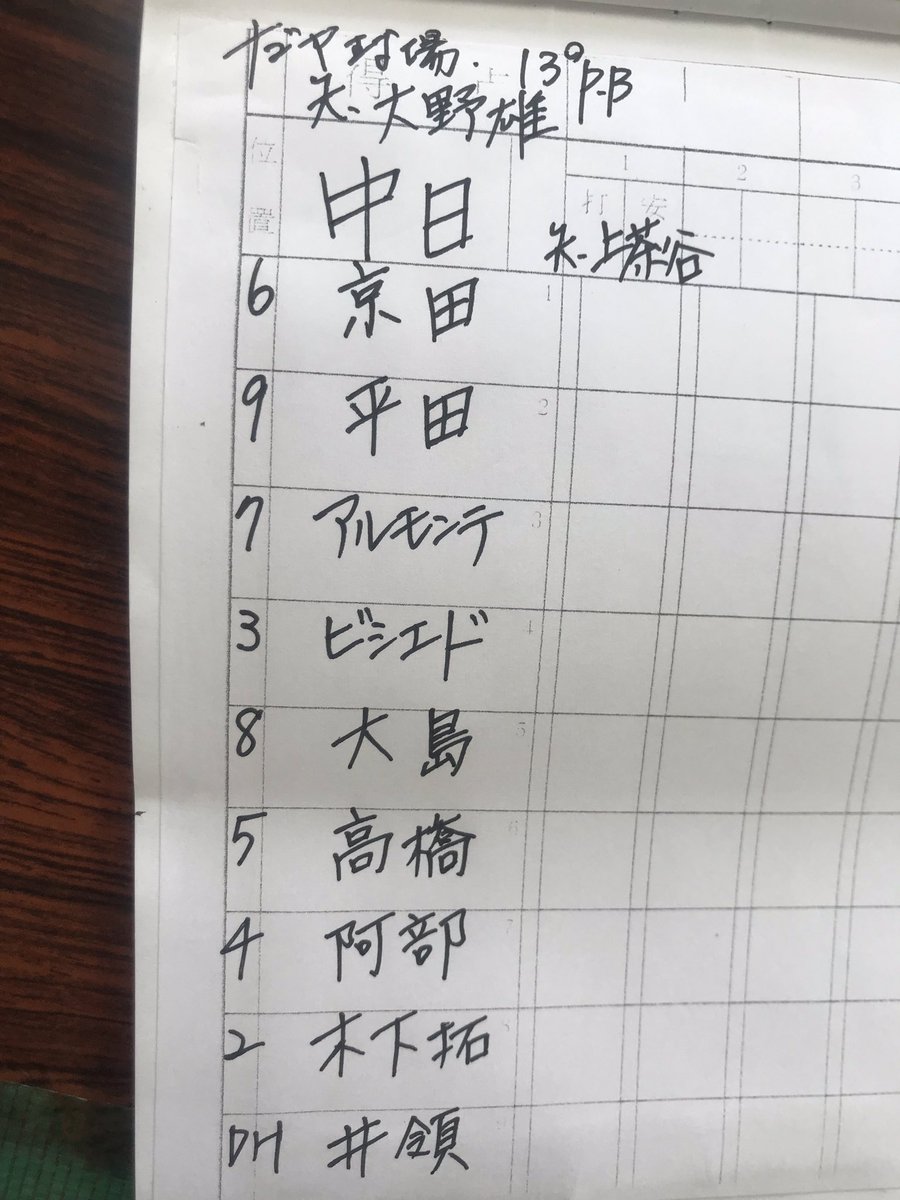 ナゴヤ球場. 13° P-B
先.大野雄
位置
中日
1 2 3
打 安
先.上茶谷
6 京田 1
9 平田 2
7 アルモンテ 3
3 ビシエド 4
8 大島 5
5 高橋 6
4 阿部 7
2 木下拓 8
DH 井領